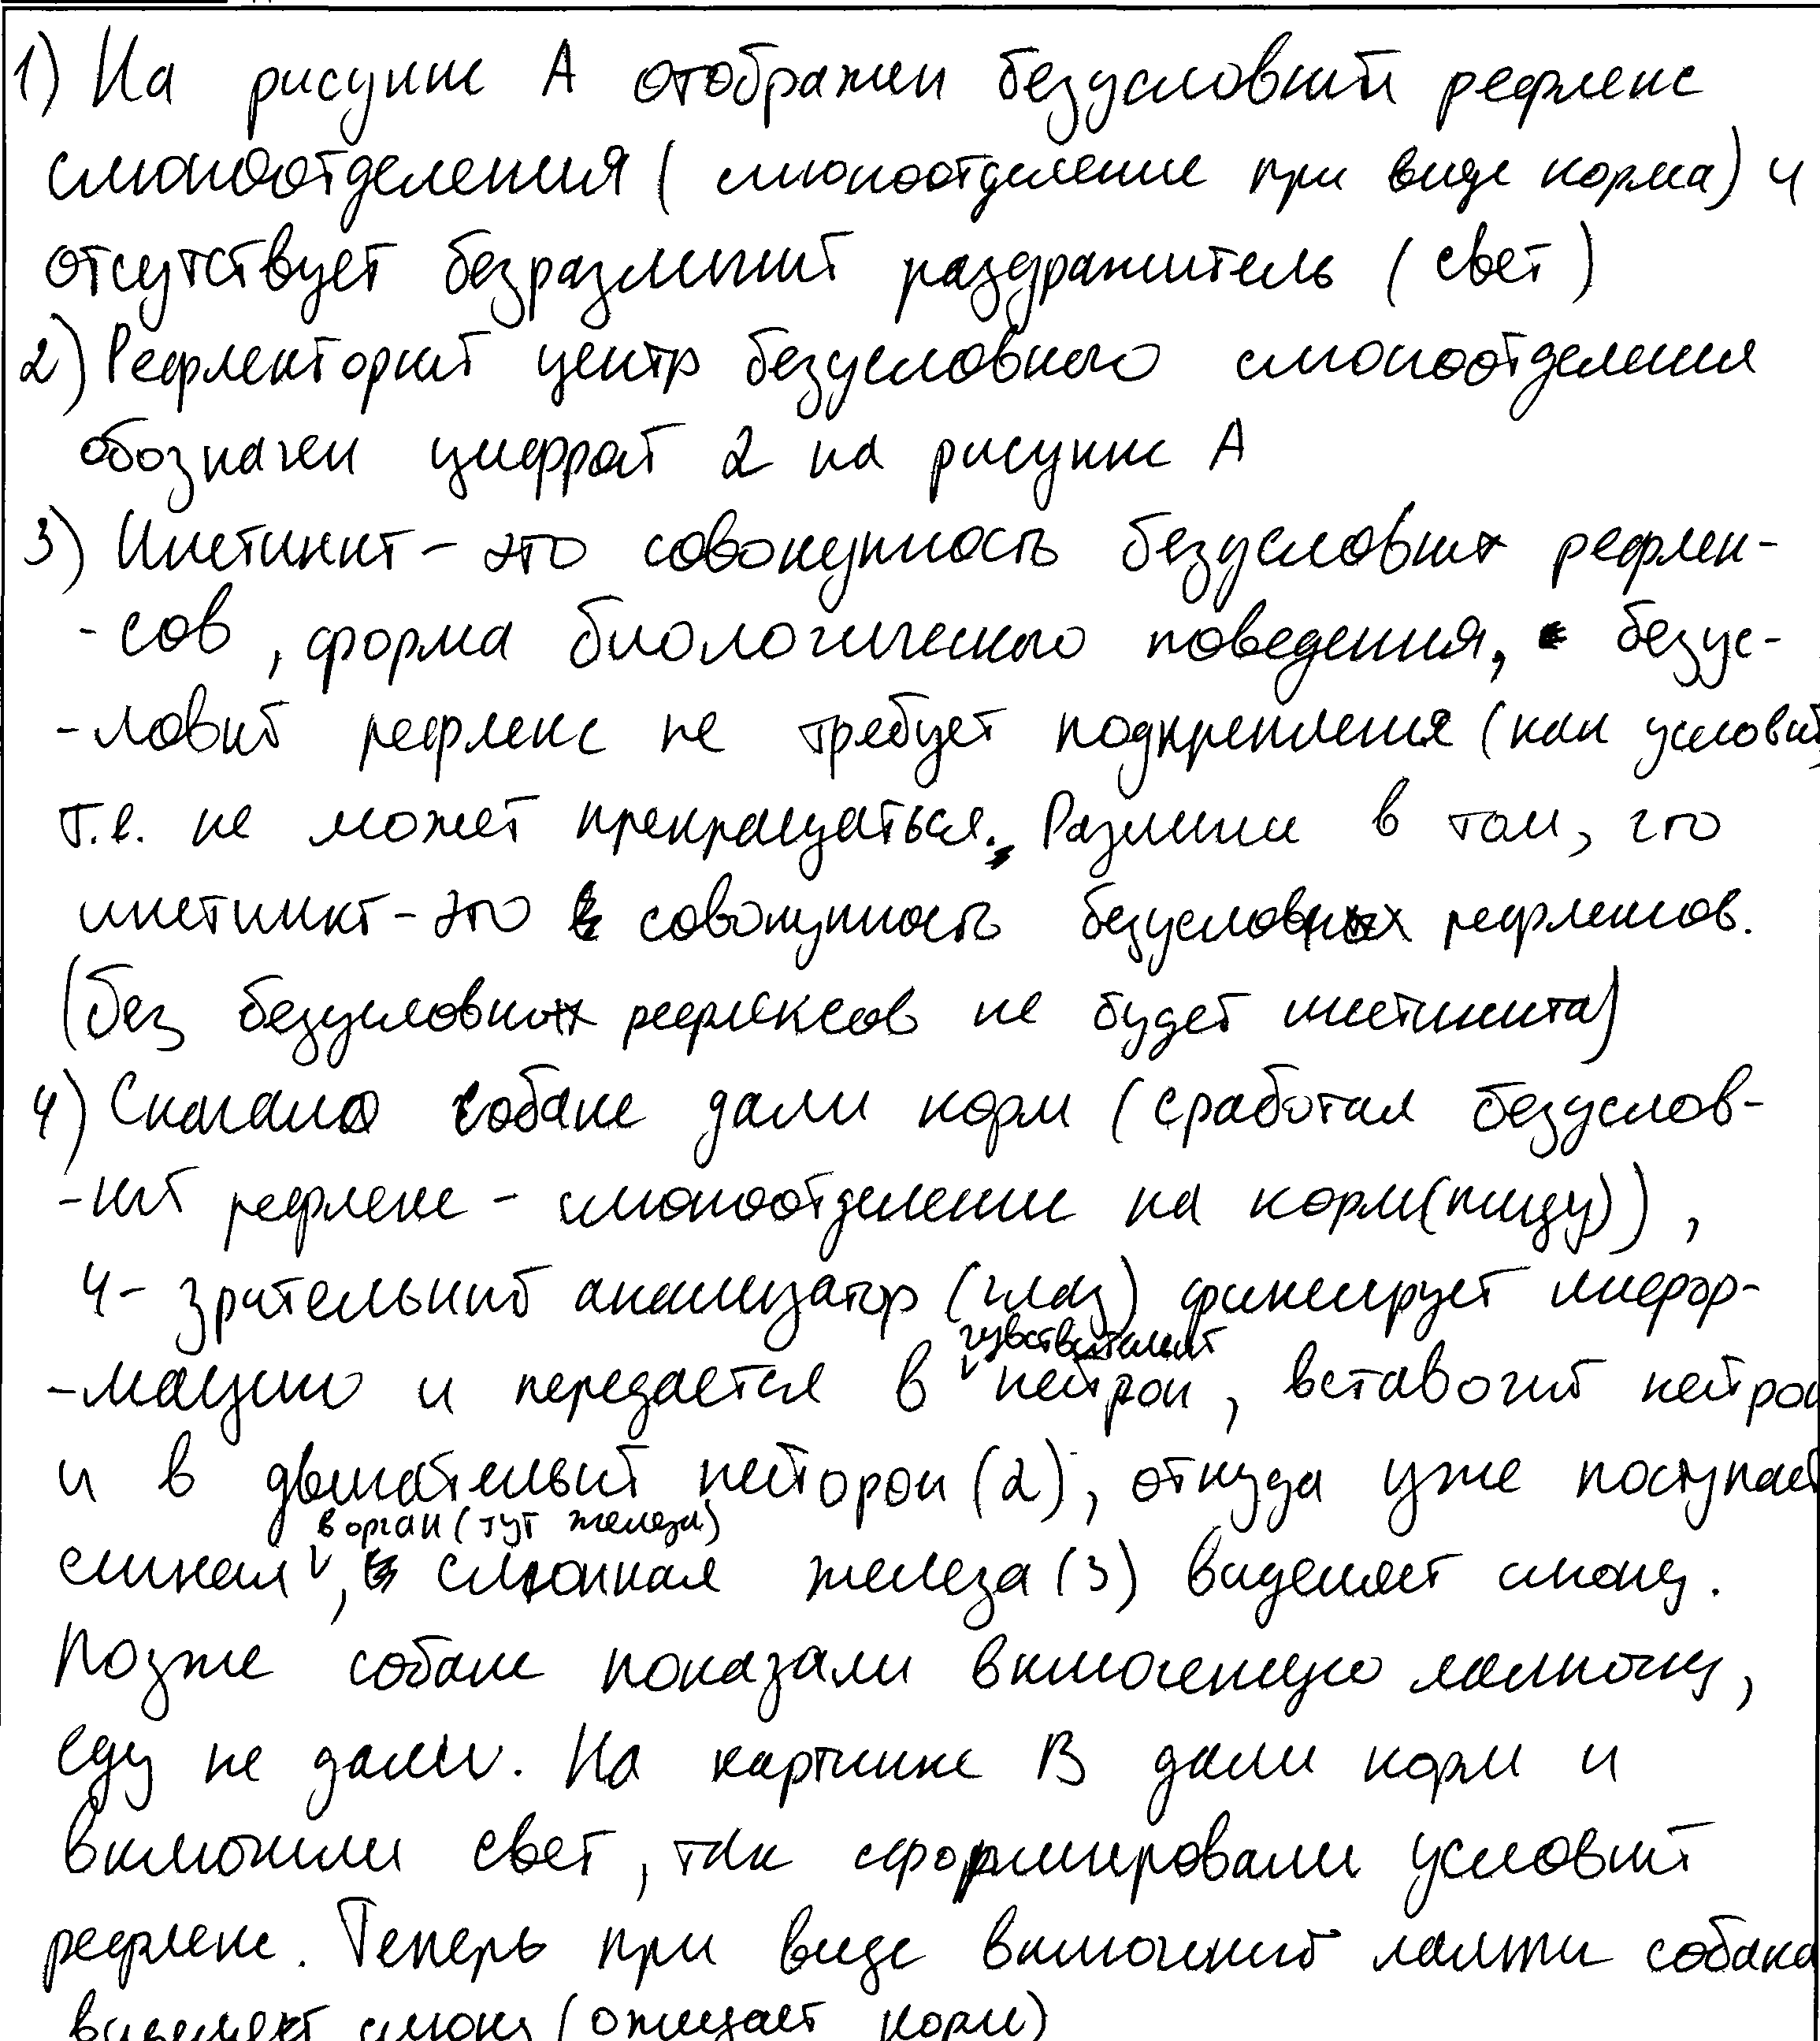 1) На рисунке А отображен безусловный рефлекс
слюноотделения ( слюноотделение при виде корма) и
отсутствует безразличный раздражитель ( свет )
2) Рефлекторный центр безусловного слюноотделения
обозначен цифрой 2 на рисунке А
3) Инстинкт - это совокупность безусловных рефлек-
-сов , форма биологического поведения, безус-
-ловный рефлекс не требует подкрепления (как условный,
т.е. не может прекращаться. Различие в том, что
инстинкт - это совокупность безусловных рефлексов.
(без безусловных рефлексов не будет инстинкта)
4) Сначала собаке дали корм (сработал безуслов-
-ный рефлекс - слюноотделение на корм(пищу)) ,
4 - зрительный анализатор (глаз) фиксирует инфор-
чувствительный
-мацию и передается в нейрон , вставочный нейрон
и в двигательный нейорон (2) , откуда уже поступает
в орган (тут железа)
сигнал , слюнная железа (3) выделяет слюну .
Позже собаке показали включенную лампочку ,
еду не дали . На картинке В дали корм и
включили свет , так сформировали условный
рефлекс . Теперь при виде включений лампы собака
выделяет слюну (ожидает корм)